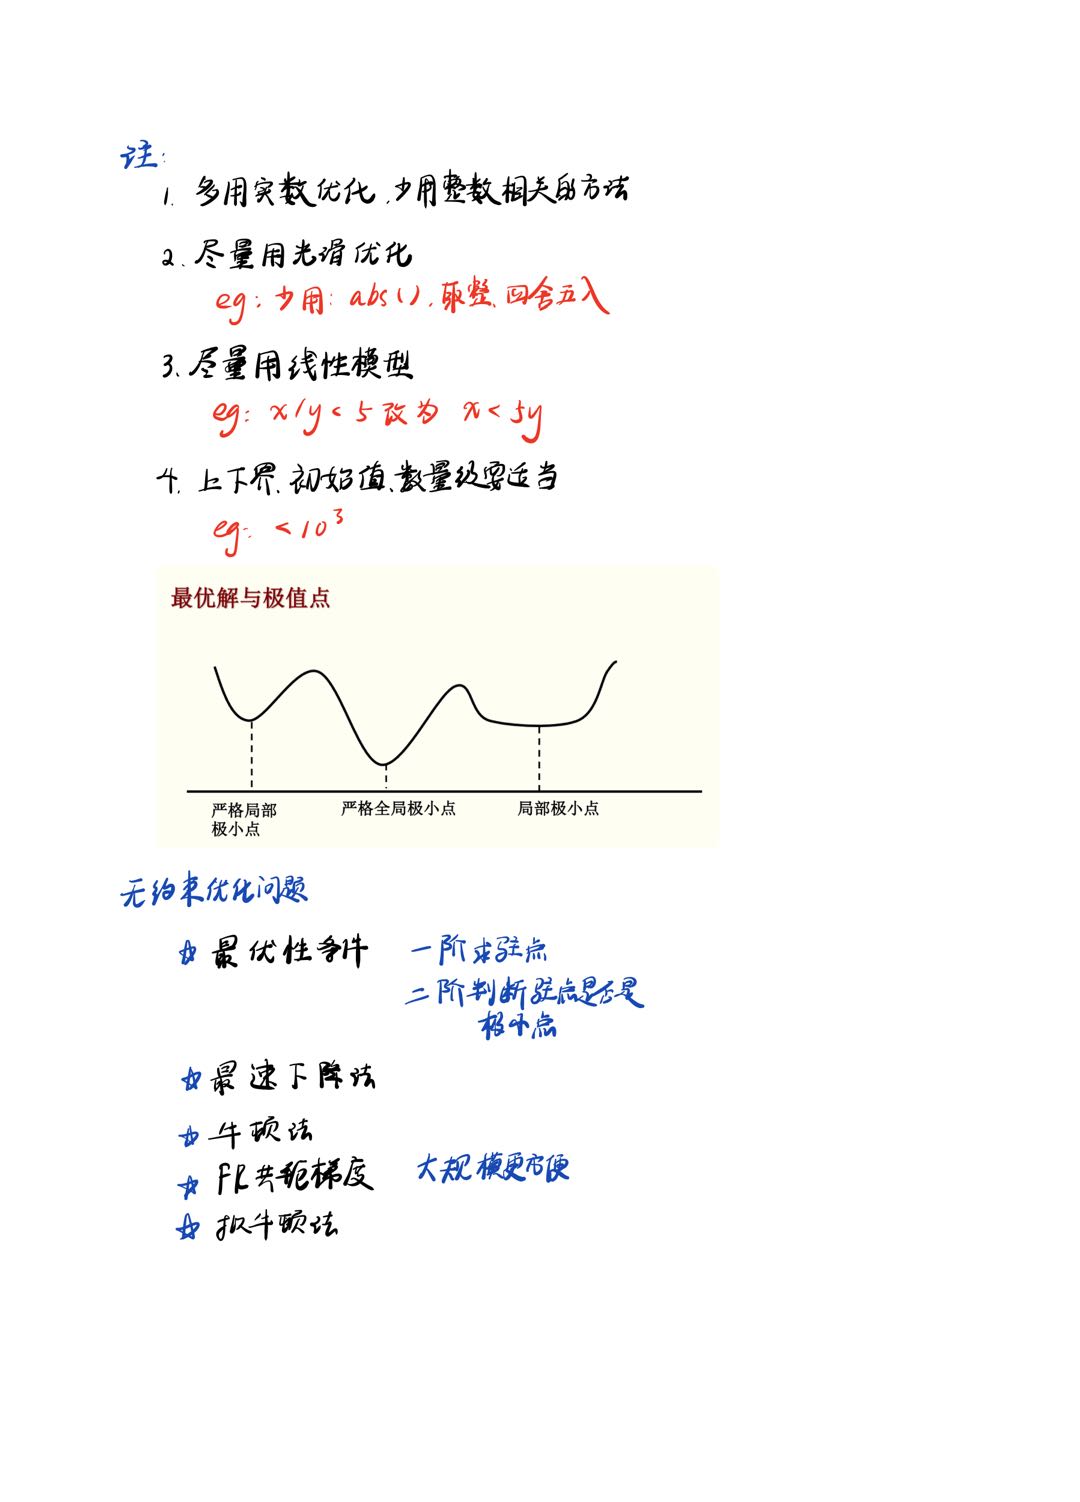 注:
1. 多用实数优化,少用整数相关的方法
2、尽量用光滑优化
eg: 少用: abs()、取整、四舍五入
3、尽量用线性模型
eg: x/y<5改为 x<5y
4、上下界、初始值、数量级要适当
eg: <10³
最优解与极值点
严格局部
极小点
严格全局极小点
局部极小点
无约束优化问题
☆ 最优性条件 一阶求驻点
二阶判断驻点是否是
极小点
☆ 最速下降法
☆ 牛顿法
☆ FR共轭梯度 大规模更方便
☆ 拟牛顿法